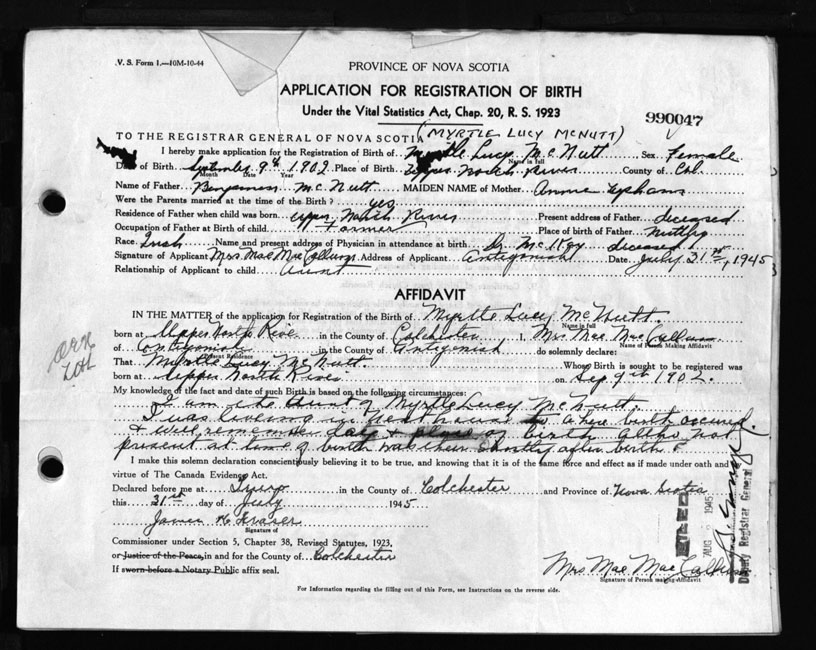 V. S. Form 1.—10M-10-44
PROVINCE OF NOVA SCOTIA
APPLICATION FOR REGISTRATION OF BIRTH
Under the Vital Statistics Act, Chap. 20, R. S. 1923
990047
(MYRTLE LUCY MCNUTT)
TO THE REGISTRAR GENERAL OF NOVA SCOTIA
I hereby make application for the Registration of Birth of Myrtle Lucy McNutt Sex Female
Name in full
Date of Birth September 9th 1902 Place of Birth Upper North River County of Col.
Month Date Year
Name of Father Benjamin McNutt MAIDEN NAME of Mother Annie Upham
Were the Parents married at the time of the Birth? yes
Residence of Father when child was born Upper North River Present address of Father deceased
Occupation of Father at Birth of child Farmer Place of birth of Father
Race Irish Name and present address of Physician in attendance at birth Dr. McKay deceased
Signature of Applicant Mrs. Mae MacCallum Address of Applicant Antigonish Date July 31st, 1945
Relationship of Applicant to child Aunt
AFFIDAVIT
IN THE MATTER of the application for Registration of the Birth of Myrtle Lucy McNutt
Name in full
born at Upper North River in the County of Colchester I, Mrs Mae MacCallum
Name of Person Making Affidavit
of Antigonish in the County of Antigonish do solemnly declare:
Present Residence
That Myrtle Lucy McNutt Whose Birth is sought to be registered was
born at Upper North River on Sep 9th 1902.
My knowledge of the fact and date of such Birth is based on the following circumstances:
I am the Aunt of Myrtle Lucy McNutt.
I was living in next house to where birth occured
& well remember date & place of birth altho not
present at time of birth was there shortly after birth
I make this solemn declaration conscientiously believing it to be true, and knowing that it is of the same force and effect as if made under oath and by
virtue of The Canada Evidence Act.
Declared before me at Truro in the County of Colchester and Province of Nova Scotia
this 31st day of July 1945
James H Fraser
Signature of
Commissioner under Section 5, Chapter 38, Revised Statutes, 1923,
or Justice of the Peace, in and for the County of Colchester
If sworn before a Notary Public affix seal.
Mrs Mae MacCallum
Signature of Person making Affidavit
AUG 1945
Deputy Registrar General
For Information regarding the filling out of this Form, see Instructions on the reverse side.